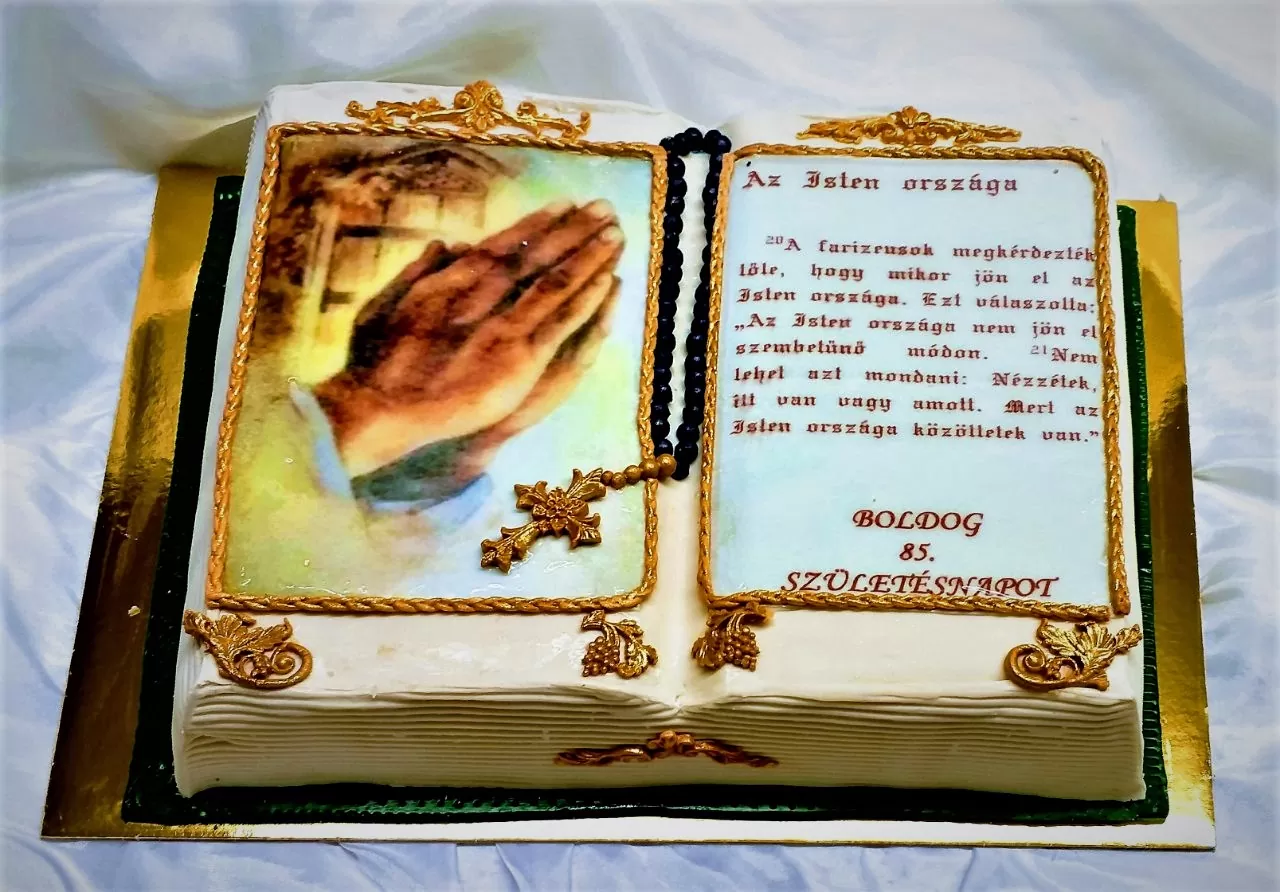 Az Isten országa
²⁰A farizeusok megkérdezték
tőle, hogy mikor jön el az
Isten országa. Ezt válaszolta:
„Az Isten országa nem jön el
szembetűnő módon. ²¹Nem
lehet azt mondani: Nézzétek,
itt van vagy amott. Mert az
Isten országa közöttetek van.”
BOLDOG
85.
SZÜLETÉSNAPOT